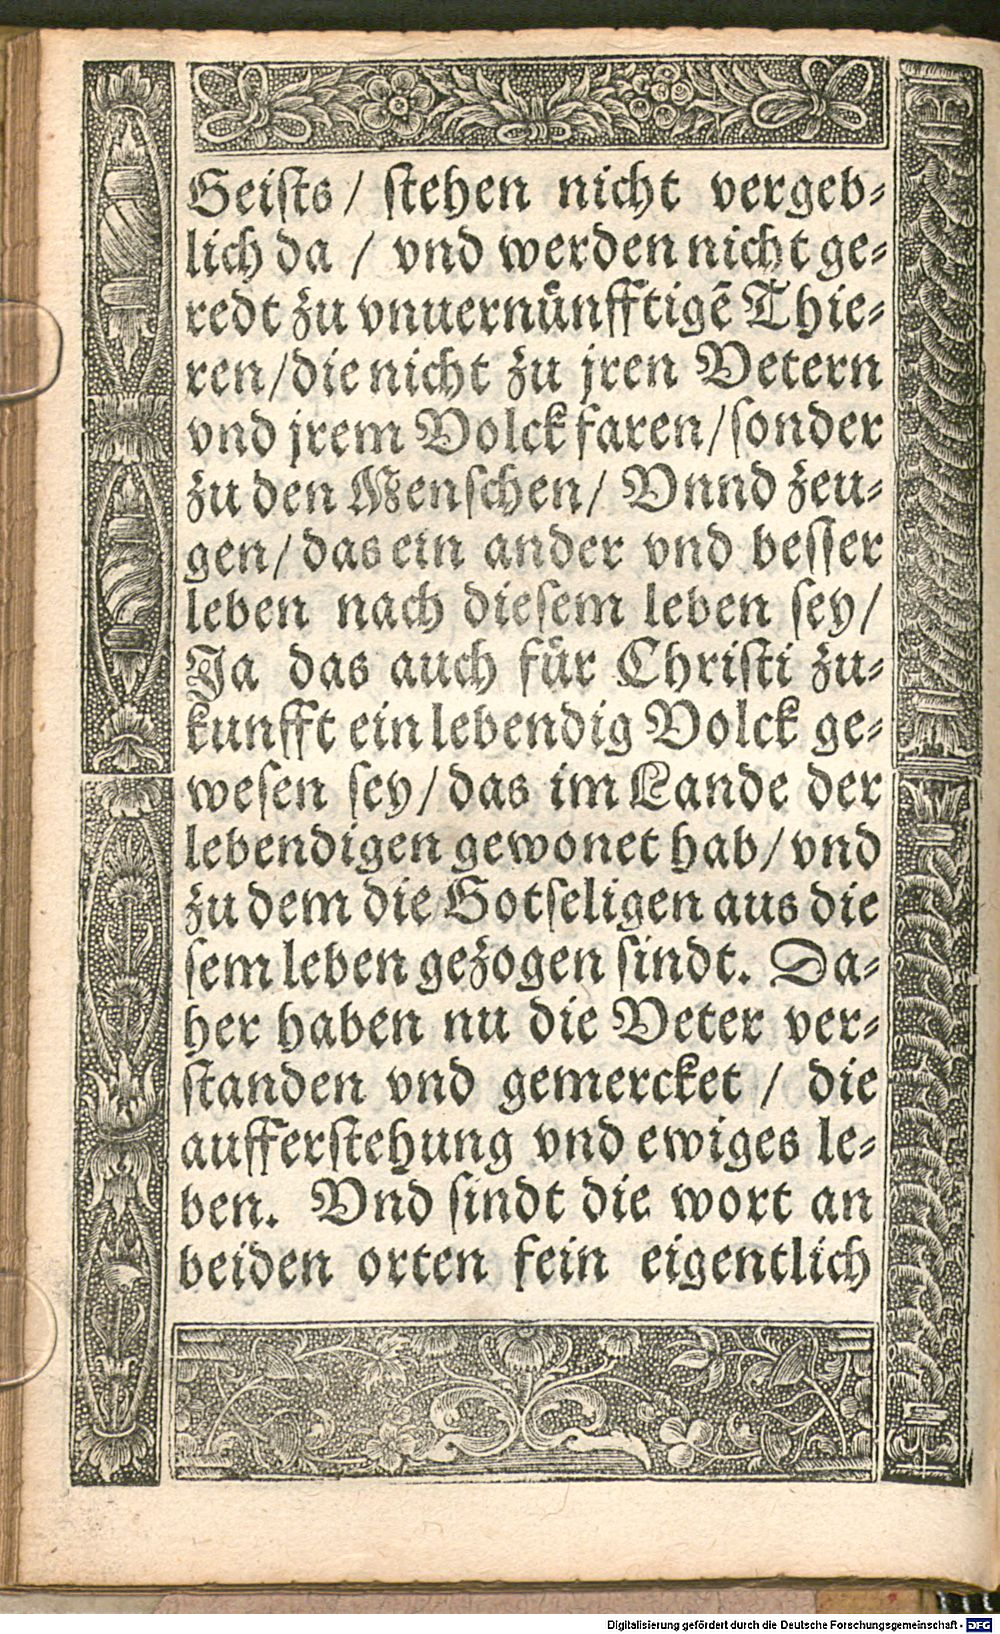 Geists / stehen nicht vergeb-
lich da / vnd werden nicht ge-
redt zu vnuernünfftigē Thie-
ren/die nicht zu jren Vetern
vnd jrem Volck faren/sonder
zu den Menschen/ Vnnd zeu-
gen/ das ein ander vnd besser
leben nach diesem leben sey/
Ja das auch für Christi zu-
kunfft ein lebendig Volck ge-
wesen sey/das im Lande der
lebendigen gewonet hab/vnd
zu dem die Gotseligen aus die
sem leben gezogen sindt. Da-
her haben nu die Veter ver-
standen vnd gemercket / die
aufferstehung vnd ewiges le-
ben. Vnd sindt die wort an
beiden orten fein eigentlich
Digitalisierung gefördert durch die Deutsche Forschungsgemeinschaft - DFG